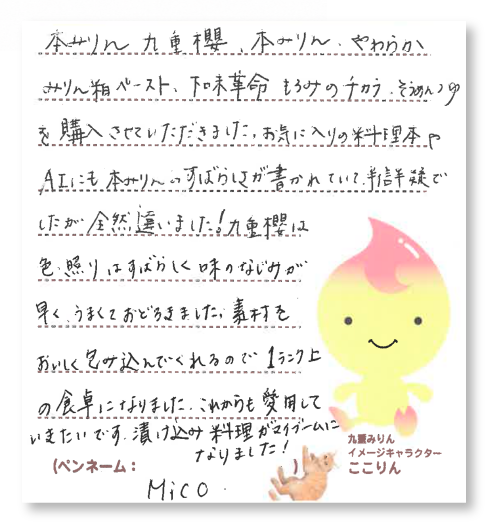 本みりん 九重櫻、本みりん、やわらか
みりん粕ペースト、下味革命 もろみのチカラ、そうめんつゆ
を購入させていただきました。お気に入りの料理本や
AIにも本みりんのすばらしさが書かれていて、半信半疑で
したが全然違いました!九重櫻は
色、照りはすばらしく味のなじみが
早く、うまくておどろきました。素材を
おいしく包み込んでくれるので1ランク上
の食卓になりました。これからも愛用して
いきたいです。漬け込み料理がマイブームに
なりました!
(ペンネーム: MiCO. )
九重みりん
イメージキャラクター
ここりん